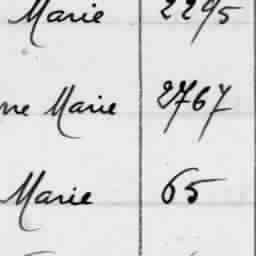 Marie 2295
ne Marie 2767
Marie 65